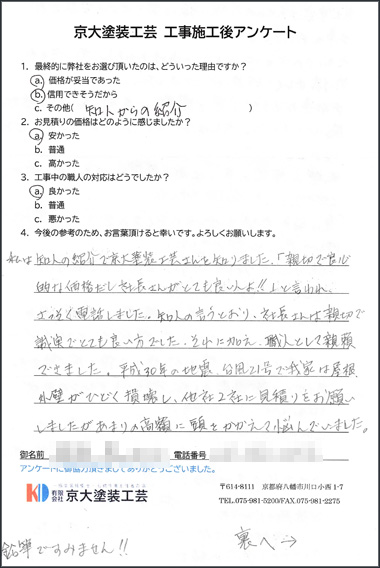 京大塗装工芸 工事施工後アンケート
1. 最終的に弊社をお選び頂いたのは、どういった理由ですか?
a. 価格が妥当であった
b. 信用できそうだから
c. その他( 知人からの紹介 )
2. お見積りの価格はどのように感じましたか?
a. 安かった
b. 普通
c. 高かった
3. 工事中の職人の対応はどうでしたか?
a. 良かった
b. 普通
c. 悪かった
4. 今後の参考のため、お言葉頂けると幸いです。よろしくお願いします。
私は知人の紹介で京大塗装工芸さんを知りました。「親切で良心
的な価格だし社長さんがとても良い人よ!!」と言われ、
さっそく電話しました。知人の言うとおり、社長さんは親切で
誠実でとても良い方でした。それに加え、職人として信頼
できました。平成30年の地震、台風21号で我家は屋根、
外壁がひどく損壊し、他社2社に見積りをお願い
しましたがあまりの高額に頭をかかえて悩んでいました。
御名前 電話番号
アンケートに御協力頂きましてありがとうございました。
KD 有限会社 京大塗装工芸
〒614-8111 京都府八幡市川口小西1-7
TEL.075-981-5200/FAX.075-981-2275
鉛筆ですみません!!
裏へ→